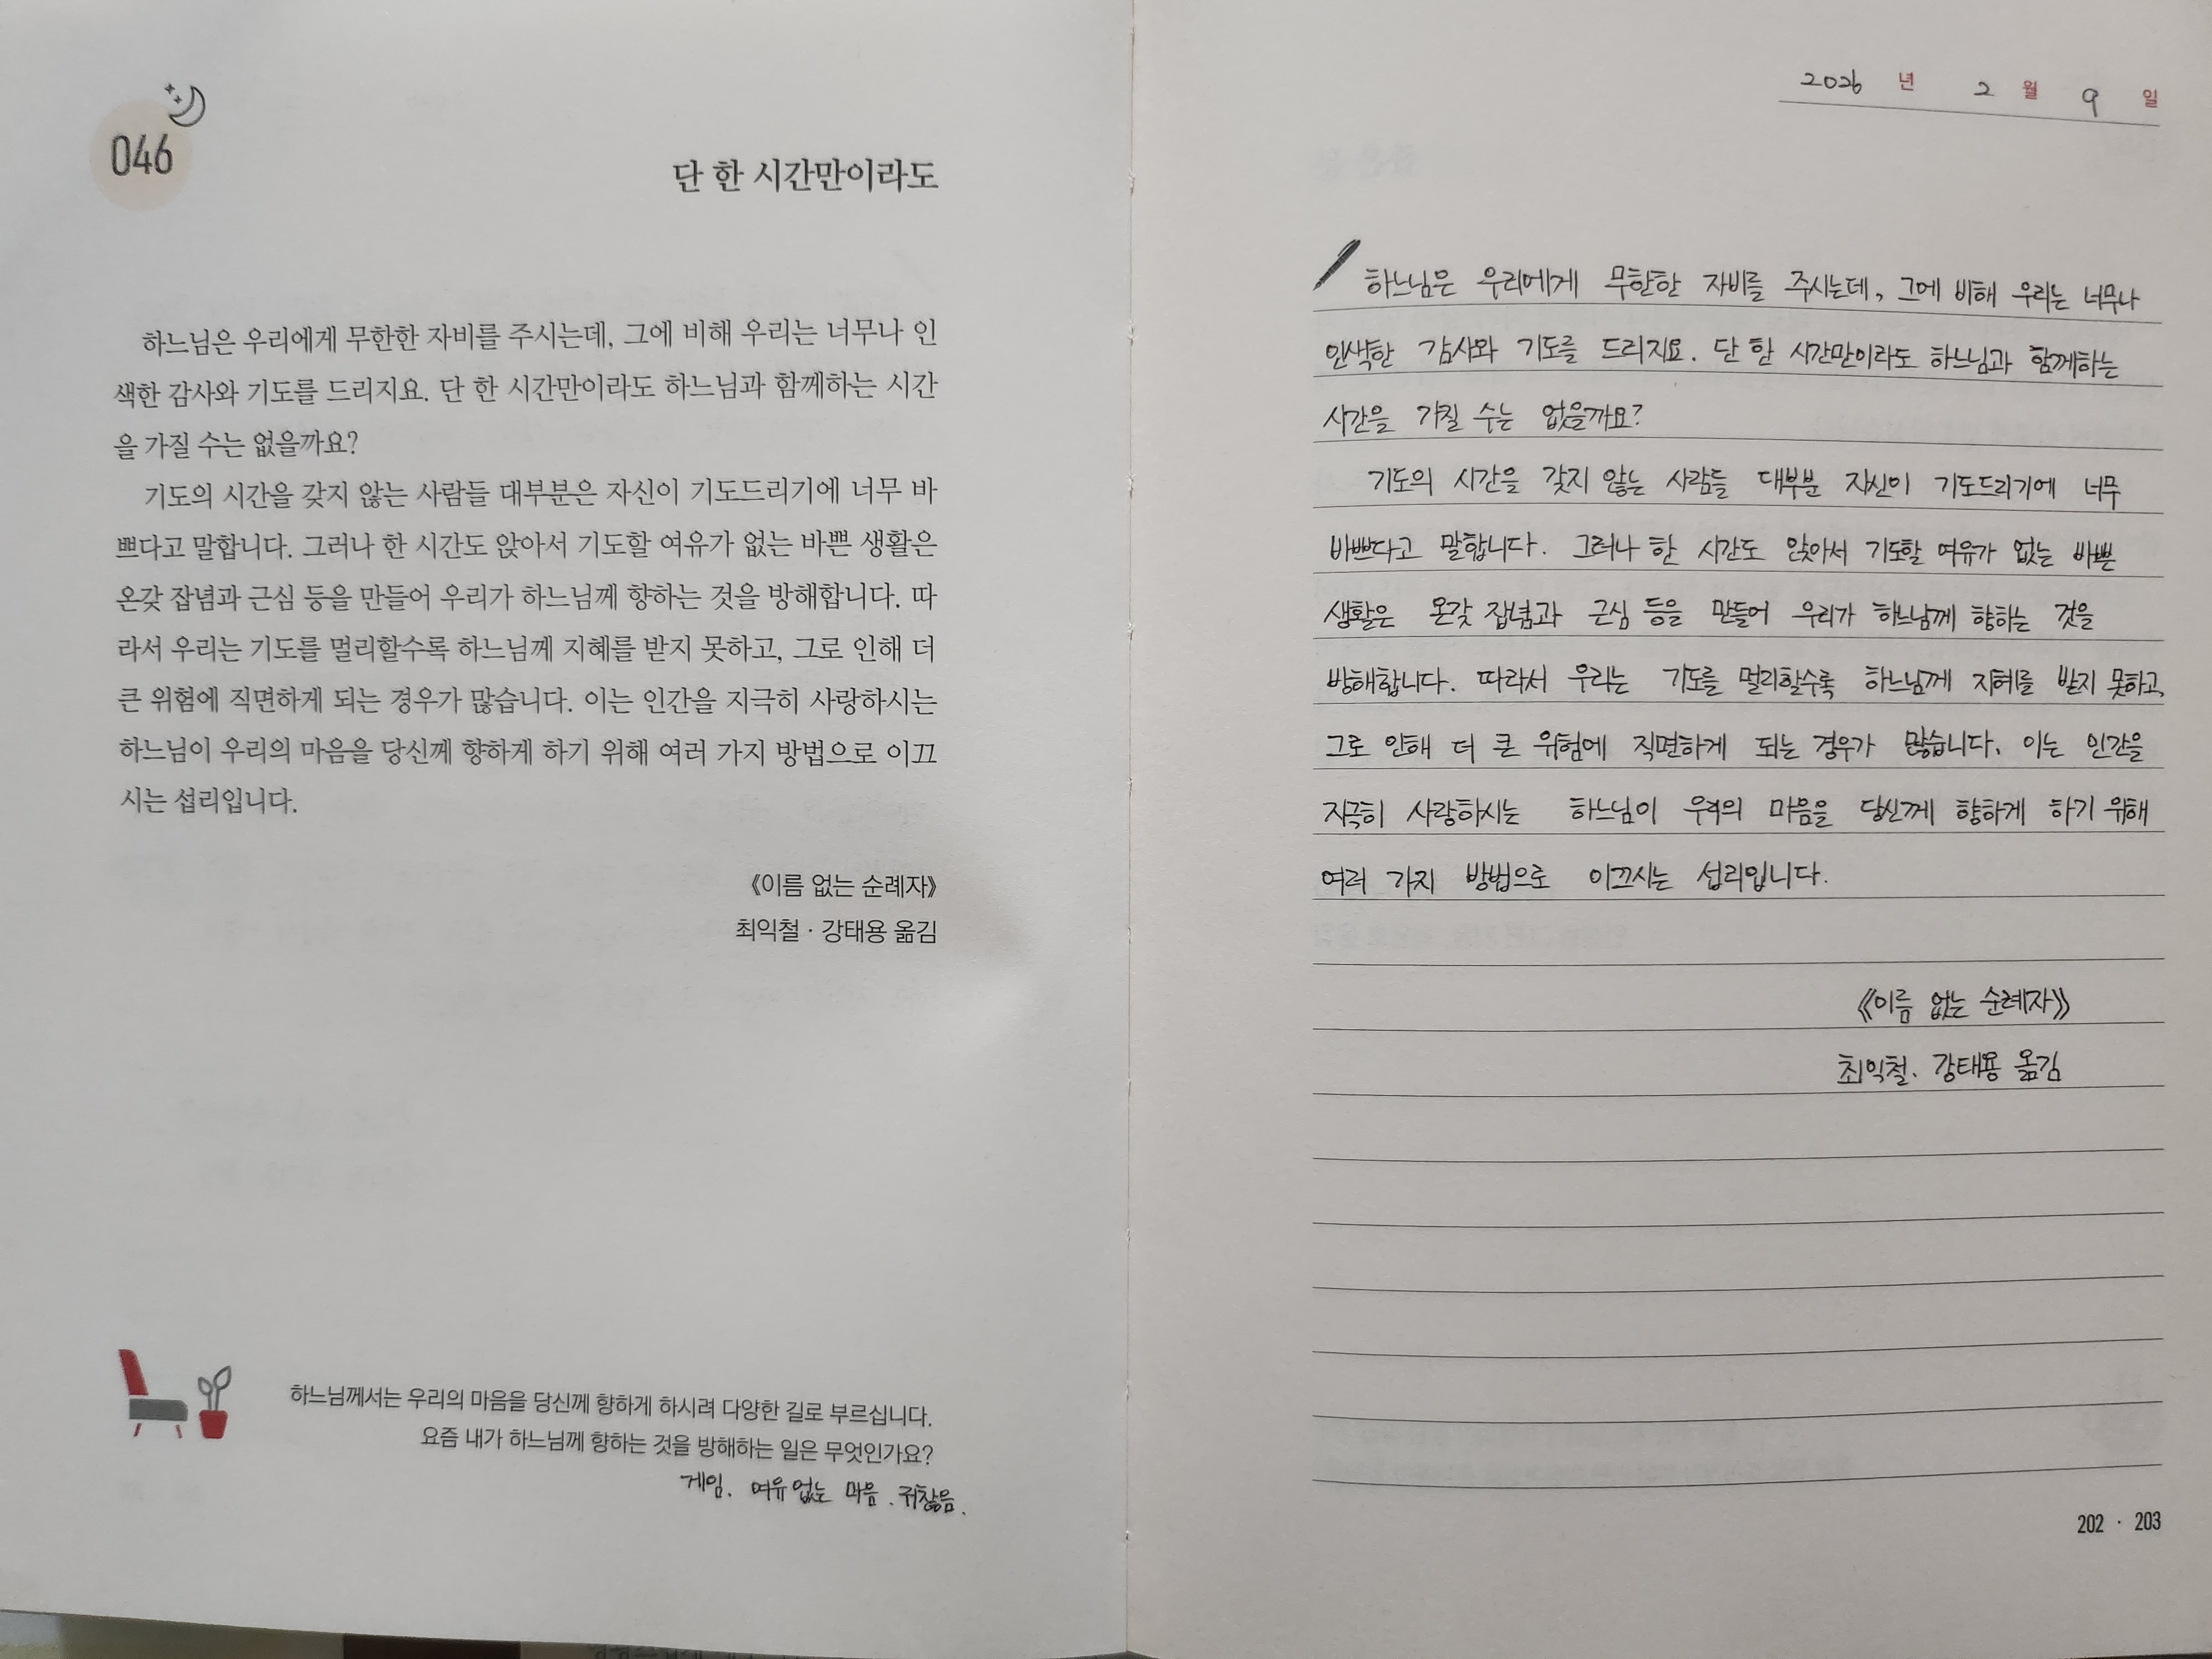 046
단 한 시간만이라도
하느님은 우리에게 무한한 자비를 주시는데, 그에 비해 우리는 너무나 인
색한 감사와 기도를 드리지요. 단 한 시간만이라도 하느님과 함께하는 시간
을 가질 수는 없을까요?
기도의 시간을 갖지 않는 사람들 대부분은 자신이 기도드리기에 너무 바
쁘다고 말합니다. 그러나 한 시간도 앉아서 기도할 여유가 없는 바쁜 생활은
온갖 잡념과 근심 등을 만들어 우리가 하느님께 향하는 것을 방해합니다. 따
라서 우리는 기도를 멀리할수록 하느님께 지혜를 받지 못하고, 그로 인해 더
큰 위험에 직면하게 되는 경우가 많습니다. 이는 인간을 지극히 사랑하시는
하느님이 우리의 마음을 당신께 향하게 하기 위해 여러 가지 방법으로 이끄
시는 섭리입니다.
《이름 없는 순례자》
최익철 · 강태용 옮김
하느님께서는 우리의 마음을 당신께 향하게 하시려 다양한 길로 부르십니다.
요즘 내가 하느님께 향하는 것을 방해하는 일은 무엇인가요?
게임. 여유 없는 마음. 귀찮음.
2026 년 2 월 9 일
하느님은 우리에게 무한한 자비를 주시는데, 그에 비해 우리는 너무나
인색한 감사와 기도를 드리지요. 단 한 시간만이라도 하느님과 함께하는
시간을 가질 수는 없을까요?
기도의 시간을 갖지 않는 사람들 대부분 자신이 기도드리기에 너무
바쁘다고 말합니다. 그러나 한 시간도 앉아서 기도할 여유가 없는 바쁜
생활은 온갖 잡념과 근심 등을 만들어 우리가 하느님께 향하는 것을
방해합니다. 따라서 우리는 기도를 멀리할수록 하느님께 지혜를 받지 못하고,
그로 인해 더 큰 위험에 직면하게 되는 경우가 많습니다. 이는 인간을
지극히 사랑하시는 하느님이 우리의 마음을 당신께 향하게 하기 위해
여러 가지 방법으로 이끄시는 섭리입니다.
《이름 없는 순례자》
최익철. 강태용 옮김
202 · 203